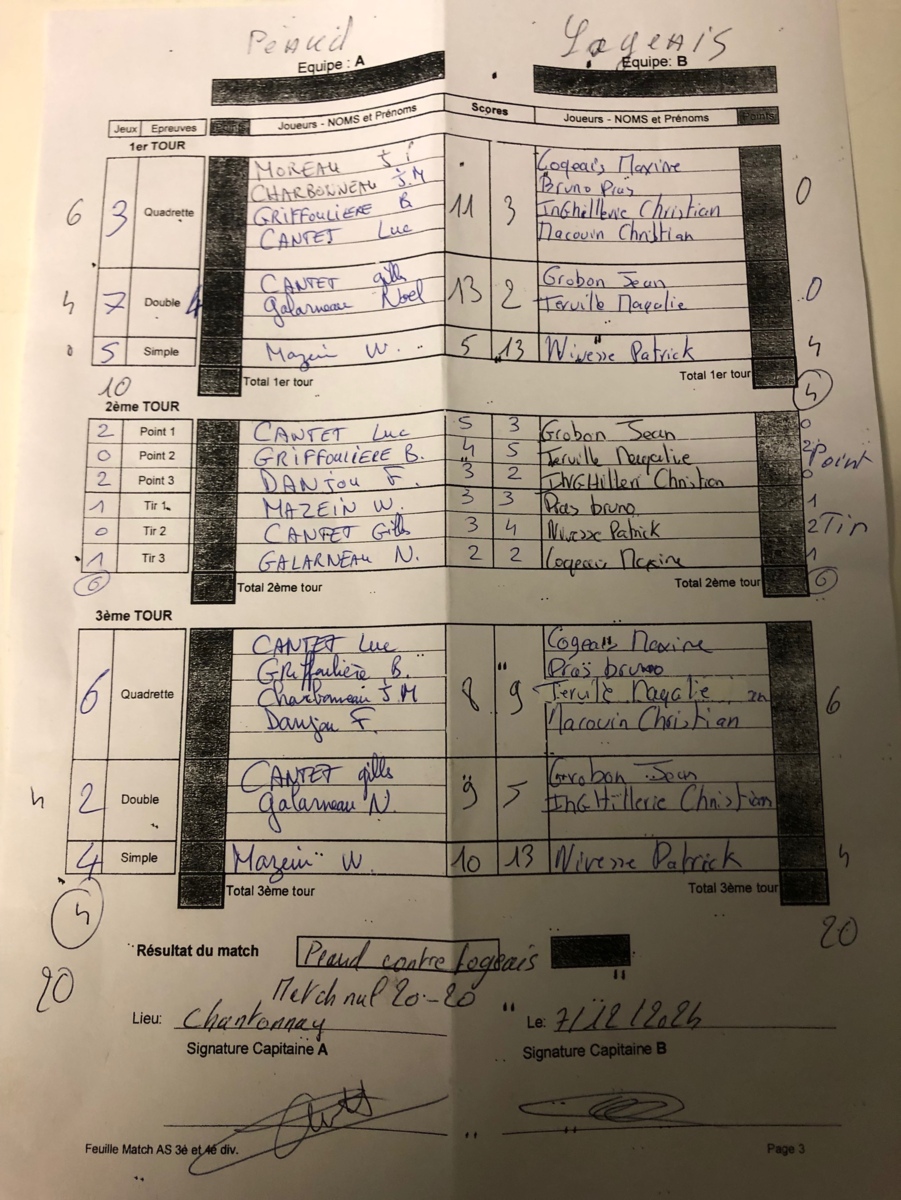 Péaud Logeais
Equipe : A Equipe: B
Jeux Epreuves Joueurs - NOMS et Prénoms Scores Joueurs - NOMS et Prénoms Points
1er TOUR
6 3 Quadrette 11 3 0
MOREAU Logeais Maxine
CHARBONNEAU J.M Bruno Pras
GRIFFOULIERE B Inghillerie Christian
CANTET Luc Macouin Christian
4 7 Double 4 13 2 0
CANTET gills Grobon Jean
Galarneau Noel Terville Magalie
0 5 Simple Mazein W. 5 13 Nivesse Patrick 4
10 Total 1er tour Total 1er tour 4
2ème TOUR
2 Point 1 CANTET Luc 5 3 Grobon Jean 0
0 Point 2 GRIFFOULIERE B. 4 5 Terville Magalie 2 Point
2 Point 3 DANJOU F. 3 2 INGHilleri Christian 0
1 Tir 1 MAZEIN W. 3 3 Pras bruno 1
0 Tir 2 CANTET Gills 3 4 Nivesse Patrick 2 Tir
1 Tir 3 GALARNEAU N. 2 2 Logeais Maxine 1
6 Total 2ème tour Total 2ème tour 6
3ème TOUR
6 Quadrette 8 9 6
CANTET Luc Logeais Maxine
Griffoulière B. Pras bruno
Charbonneau J.M Terville Magalie
Danjou F. Macouin Christian
4 2 Double 9 5
CANTET gills Grobon Jean
Galarneau N. IngHillerie Christian
4 Simple Mazein W 10 13 Nivesse Patrick 4
Total 3ème tour Total 3ème tour
4 20
Résultat du match Péaud contre Logeais
20 Match nul 20-20
Lieu: Chantonnay Le: 7/12/2024
Signature Capitaine A Signature Capitaine B
Feuille Match AS 3é et 4é div. Page 3